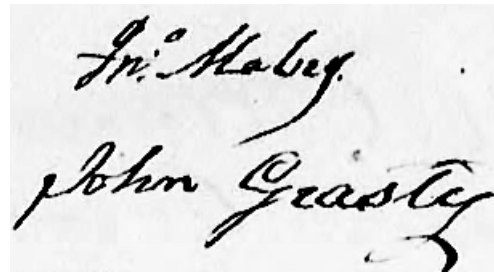 Jno. Mabry.
John Grasty